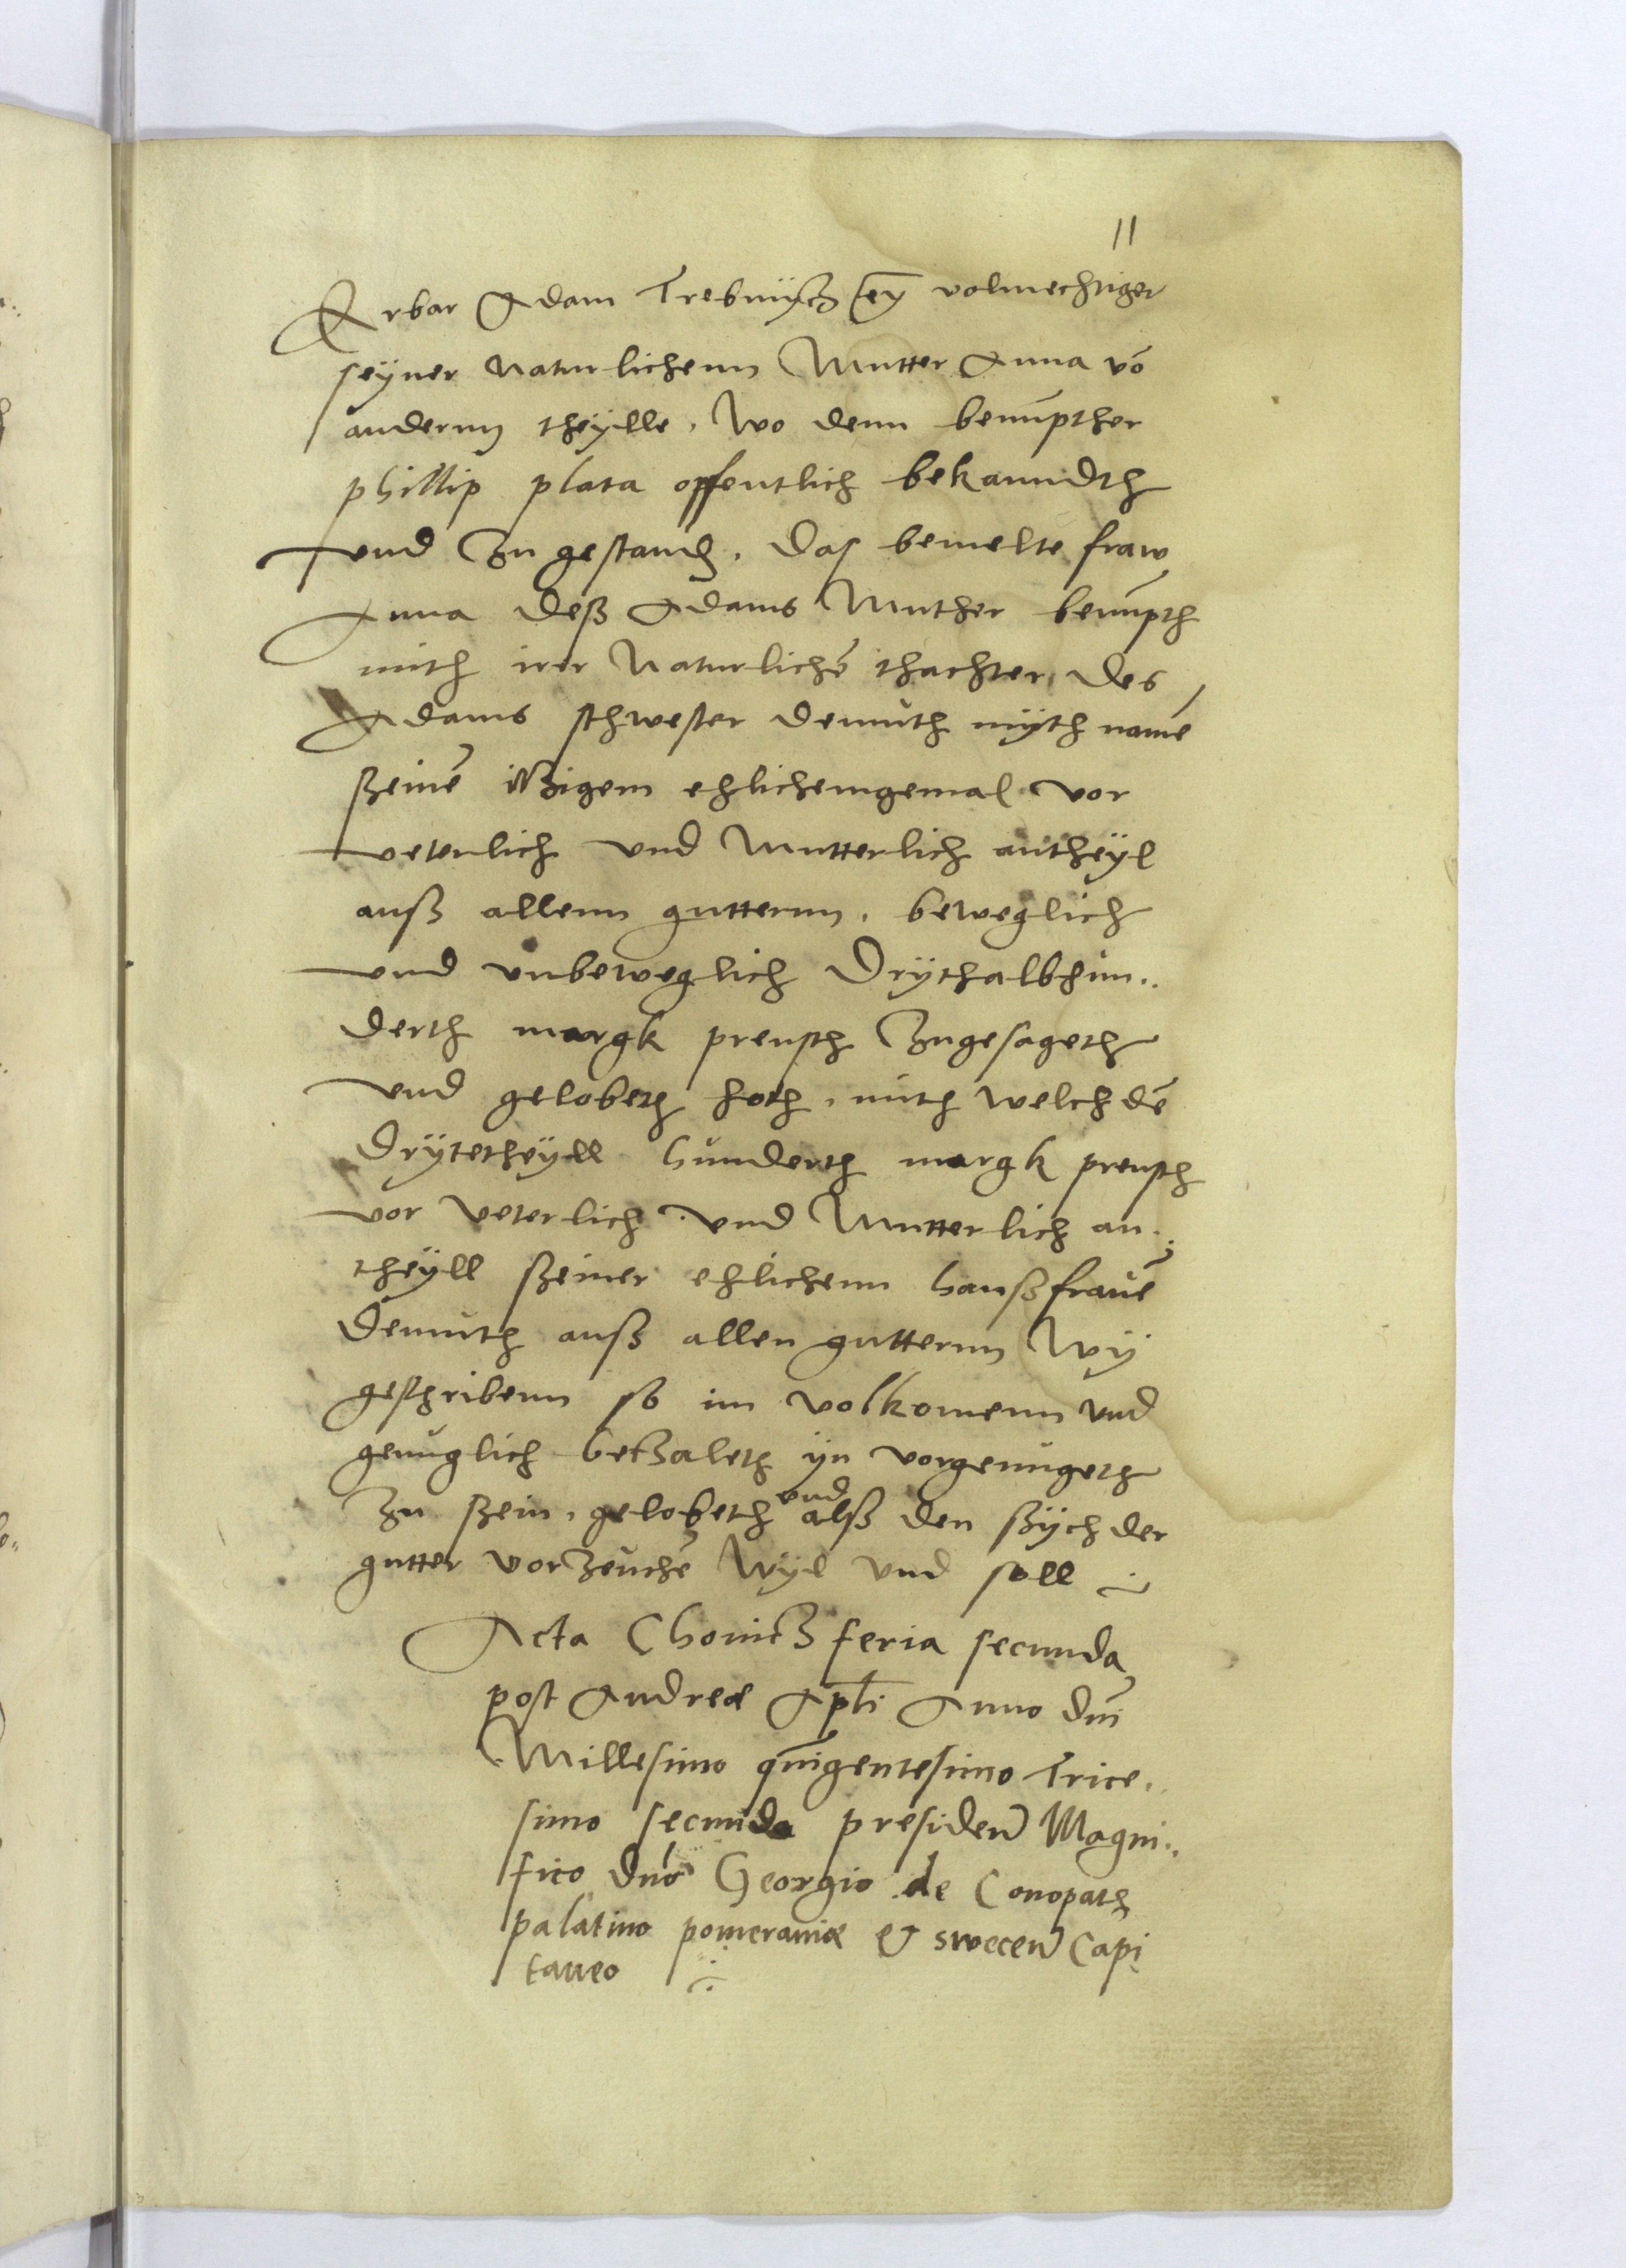 11
Erbar Adam Trebnÿtz eÿ volmechtiger
seÿner Naturlichenn Mutter Anna võ
andernn theÿlle, Wo denn benu͂pther
phillip plata offentlich bekanndth
vnd Zu gestandt, Das bemelte fraw
Anna deß Adams Muther benu͂pth
mith irer Naturlichẽ thachter, des
Adams schwester Demuth mÿth namẽ
ßeinẽ itzigem ehlichemgemal vor
veterlich vnd Mutterlich antheÿl
auß allenn gutternn, beweglich
vnd vnbeweglich Drÿthalbhun..
derth margk preusch Zugesageth
vnd gelobeth hoth, mith welch dẽ
Drÿtetheÿll hunderth margk preusch
vor veterlich vnd Mutterlich an..
theÿll ßeiner ehlichenn haußfrauẽ
Demuth auß allen gutternn Wÿ
geschribenn so im volkomenn vnd
genuglich betzaleth ÿn vorgenugeth
Zu ßein, gelobeth vnd alß den ßÿch der
gutter vorzeuchẽ Wÿl vnd soll
Acta Chonitz feria secunda
post Andreæ Apl̃i Anno dñi
Millesimo quĩgentesimo Trice.
simo secundo presideñ Magni..
fico dño Georgio de Conopath
palatino pomeraniæ & sweceñ Capi
taneo